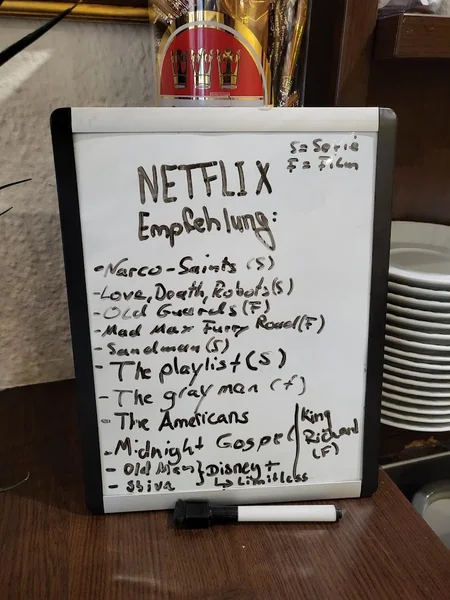 S = Serie
F = Film
NETFLIX
Empfehlung:
- Narco-Saints (S)
- Love, Death, Robots (S)
- Old Guards (F)
- Mad Max Furry Road (F)
- Sandman (S)
- The playlist (S)
- The gray man (f)
- The Americans
- Midnight Gospel
King
Richard
(F)
- Old Man } Disney +
- Shiva ↳ Limitless